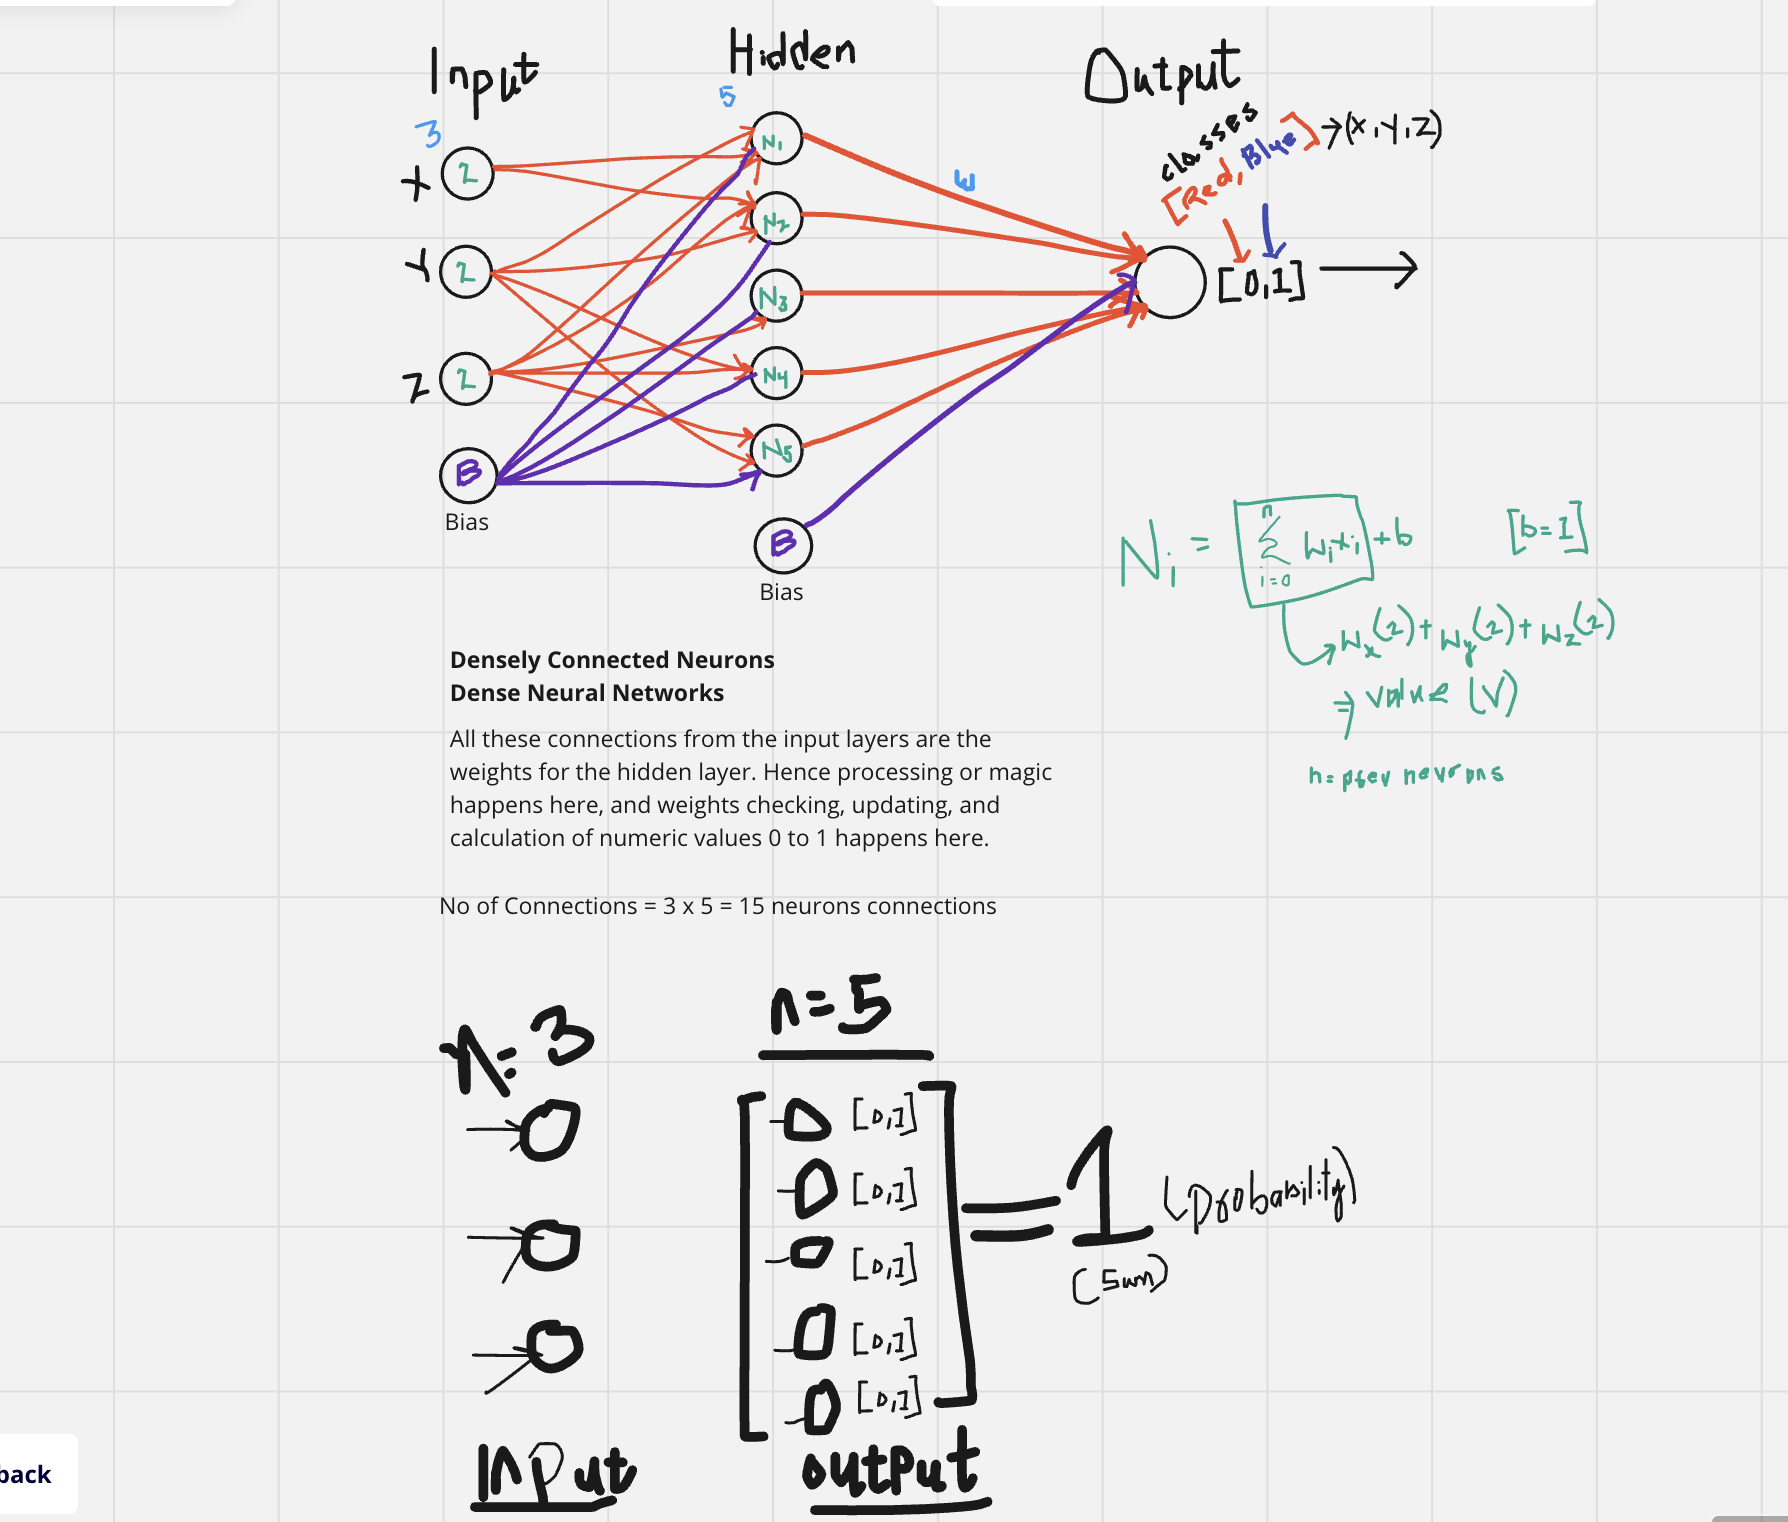 Input
Hidden
Output
3
5
classes
[Red, Blue] → (X, Y, Z)
X
2
Y
2
Z
2
B
Bias
N1
N2
N3
N4
N5
B
Bias
W
[0,1]
Ni = n Σ i=0 Wixi + b [b=1]
Wx(2) + Wy(2) + Wz(2)
⇒ value (V)
n = prev neurons
Densely Connected Neurons
Dense Neural Networks
All these connections from the input layers are the
weights for the hidden layer. Hence processing or magic
happens here, and weights checking, updating, and
calculation of numeric values 0 to 1 happens here.
No of Connections = 3 x 5 = 15 neurons connections
n = 3
n = 5
[0,1]
[0,1]
[0,1]
[0,1]
[0,1]
= 1 (probability)
(Sum)
Input
output
back